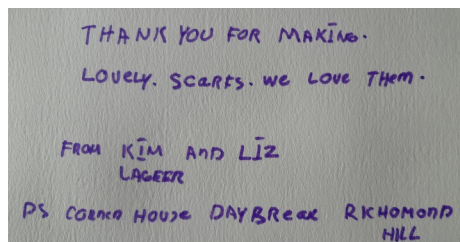 THANK YOU FOR MAKING.
LOVELY. SCARFS. WE LOVE THEM.
FROM KIM AND LIZ
LAGEER
PS CORNER HOUSE DAYBREAK RICHOMOND
HILL